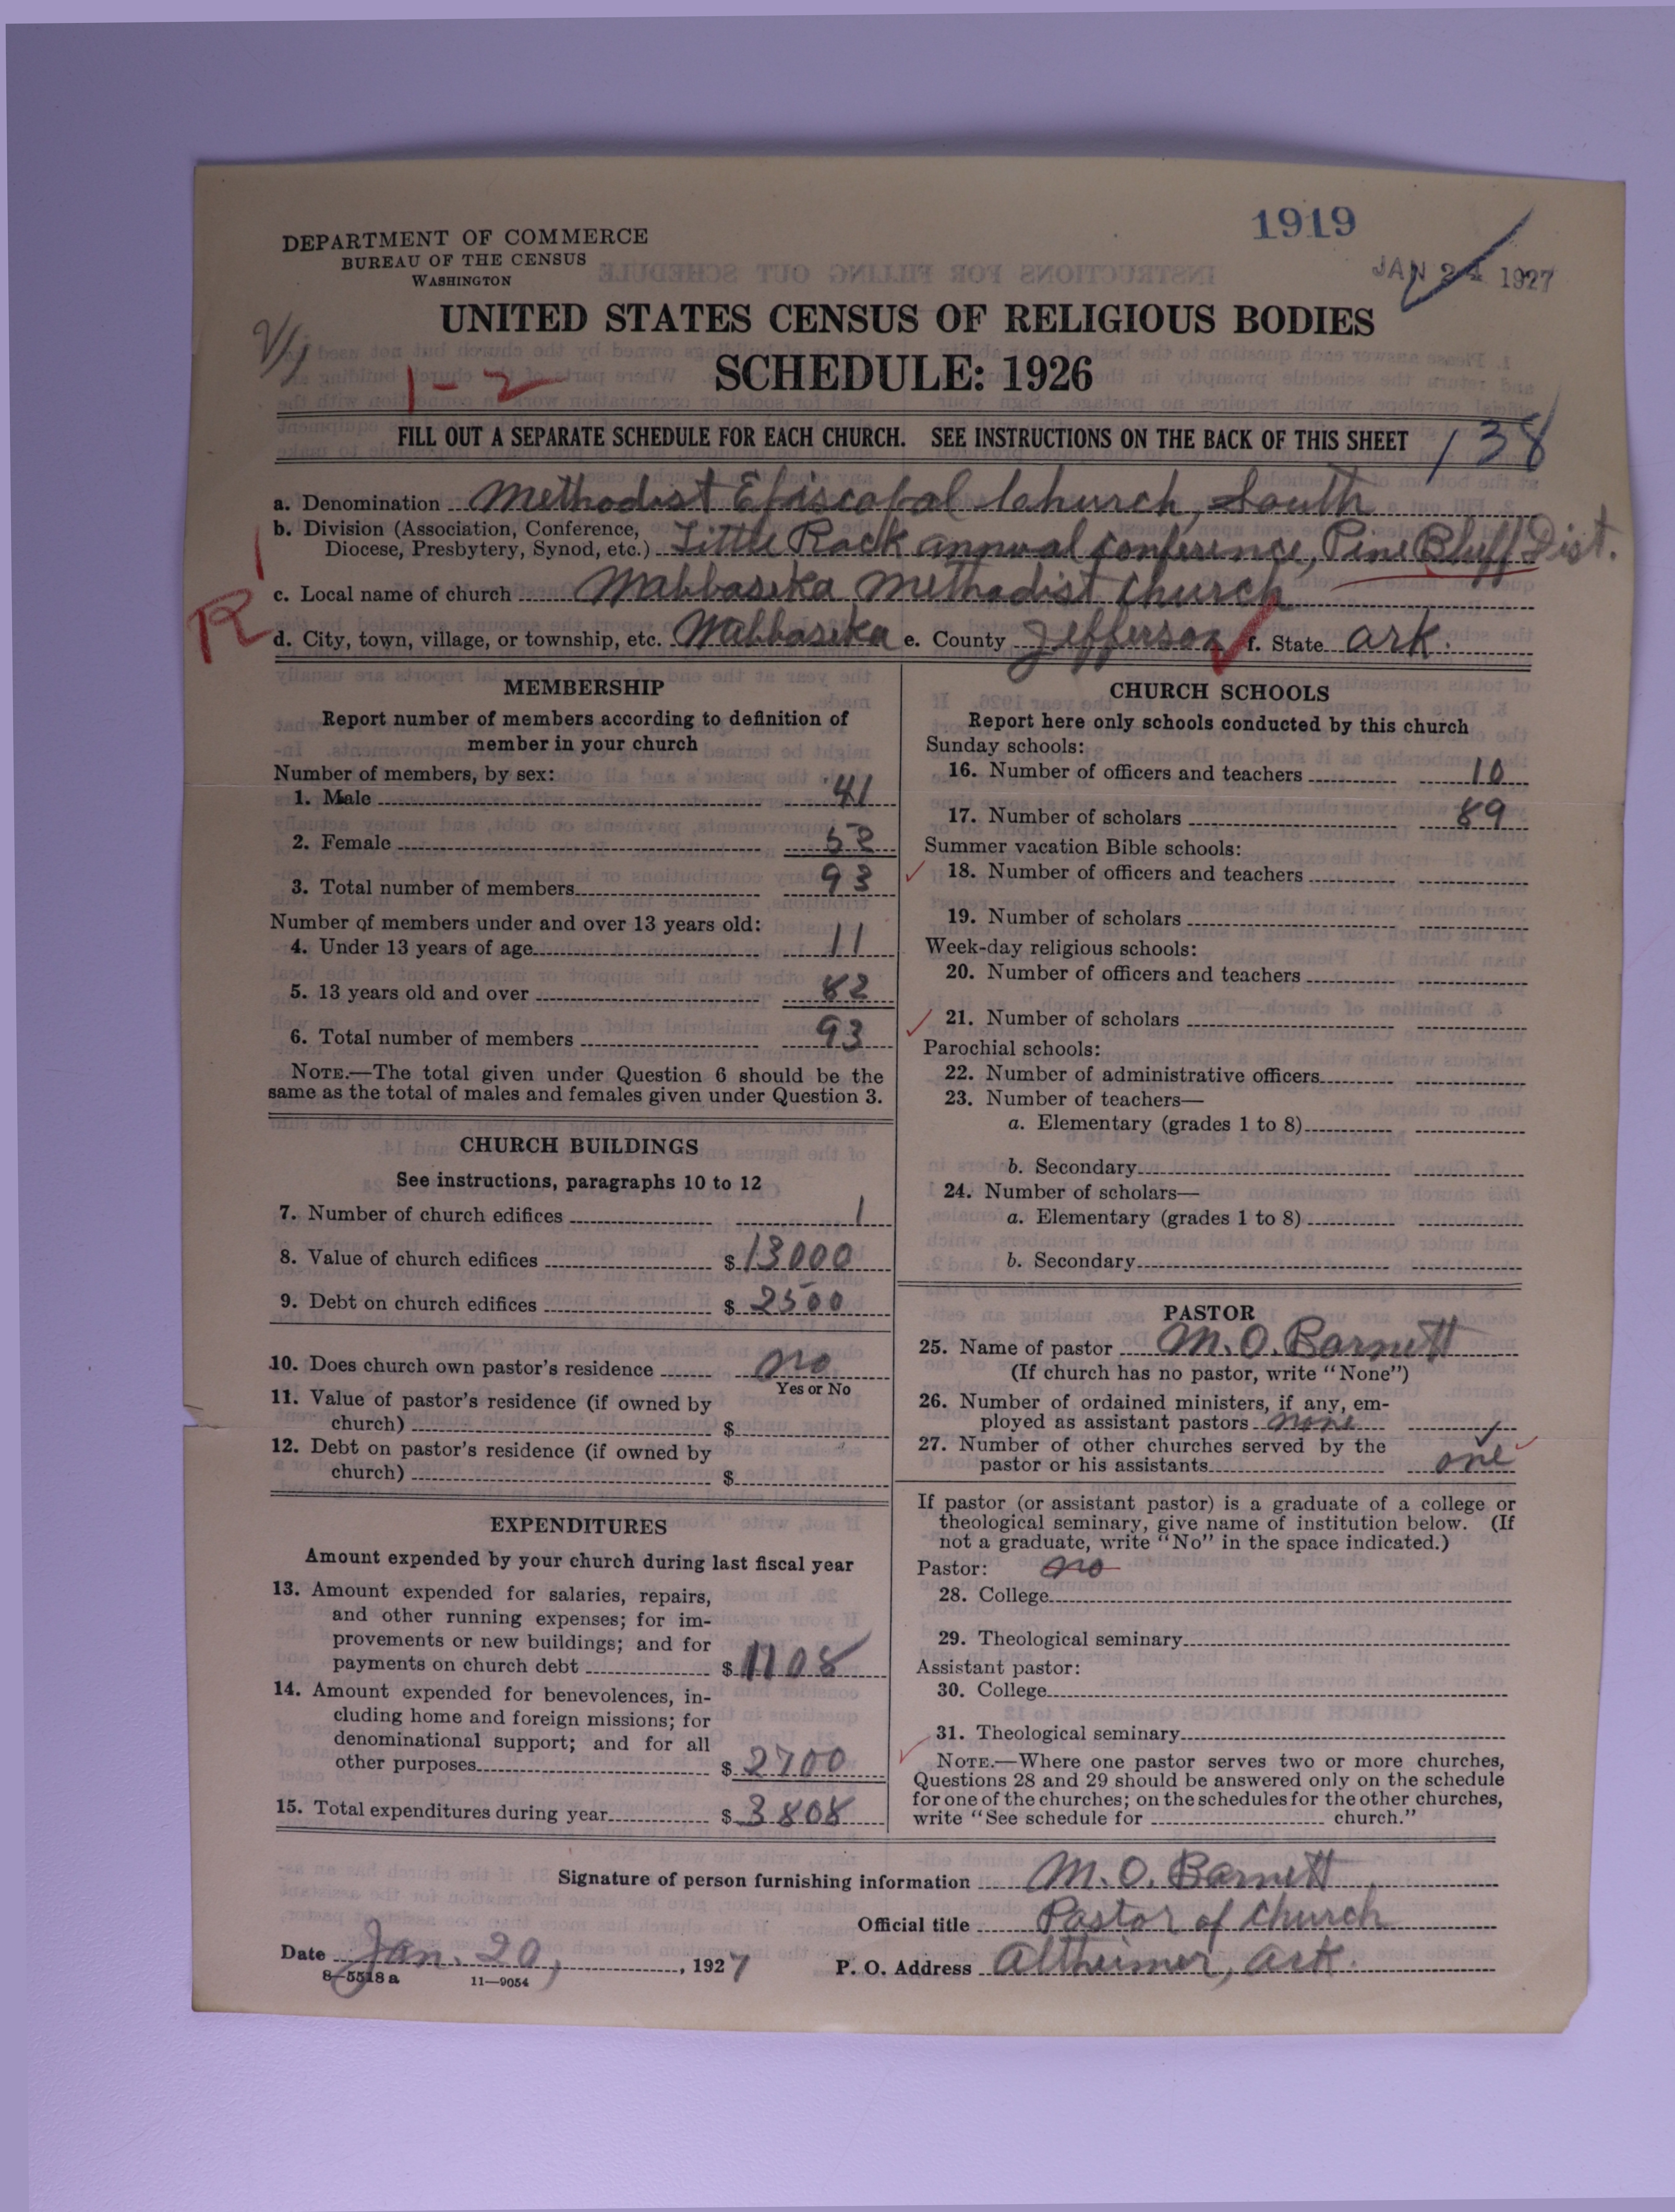 1919
JAN 24 1927
DEPARTMENT OF COMMERCE
BUREAU OF THE CENSUS
WASHINGTON
UNITED STATES CENSUS OF RELIGIOUS BODIES
SCHEDULE: 1926
1-2
FILL OUT A SEPARATE SCHEDULE FOR EACH CHURCH. SEE INSTRUCTIONS ON THE BACK OF THIS SHEET
138
a. Denomination Methodist Episcopal Church, South
b. Division (Association, Conference,
Diocese, Presbytery, Synod, etc.) Little Rock annual Conference, Pine Bluff Dist.
c. Local name of church Wabbaseka Methodist Church
R
d. City, town, village, or township, etc. Wabbaseka e. County Jefferson f. State Ark.
MEMBERSHIP
Report number of members according to definition of
member in your church
Number of members, by sex:
1. Male 41
2. Female 52
3. Total number of members 93
Number of members under and over 13 years old:
4. Under 13 years of age 11
5. 13 years old and over 82
6. Total number of members 93
NOTE.—The total given under Question 6 should be the
same as the total of males and females given under Question 3.
CHURCH BUILDINGS
See instructions, paragraphs 10 to 12
7. Number of church edifices 1
8. Value of church edifices $ 13000
9. Debt on church edifices $ 2500
10. Does church own pastor's residence no
Yes or No
11. Value of pastor's residence (if owned by
church) $
12. Debt on pastor's residence (if owned by
church) $
EXPENDITURES
Amount expended by your church during last fiscal year
13. Amount expended for salaries, repairs,
and other running expenses; for im-
provements or new buildings; and for
payments on church debt $ 1108
14. Amount expended for benevolences, in-
cluding home and foreign missions; for
denominational support; and for all
other purposes $ 2700
15. Total expenditures during year $ 3808
CHURCH SCHOOLS
Report here only schools conducted by this church
Sunday schools:
16. Number of officers and teachers 10
17. Number of scholars 89
Summer vacation Bible schools:
18. Number of officers and teachers
19. Number of scholars
Week-day religious schools:
20. Number of officers and teachers
21. Number of scholars
Parochial schools:
22. Number of administrative officers
23. Number of teachers—
a. Elementary (grades 1 to 8)
b. Secondary
24. Number of scholars—
a. Elementary (grades 1 to 8)
b. Secondary
PASTOR
25. Name of pastor M. O. Barnett
(If church has no pastor, write "None")
26. Number of ordained ministers, if any, em-
ployed as assistant pastors none
27. Number of other churches served by the
pastor or his assistants one
If pastor (or assistant pastor) is a graduate of a college or
theological seminary, give name of institution below. (If
not a graduate, write "No" in the space indicated.)
Pastor: no
28. College
29. Theological seminary
Assistant pastor:
30. College
31. Theological seminary
NOTE.—Where one pastor serves two or more churches,
Questions 28 and 29 should be answered only on the schedule
for one of the churches; on the schedules for the other churches,
write "See schedule for church."
Signature of person furnishing information M. O. Barnett
Official title Pastor of Church
Date Jan. 20, 1927
P. O. Address Altheimer, Ark.
8—5518 a 11—9054